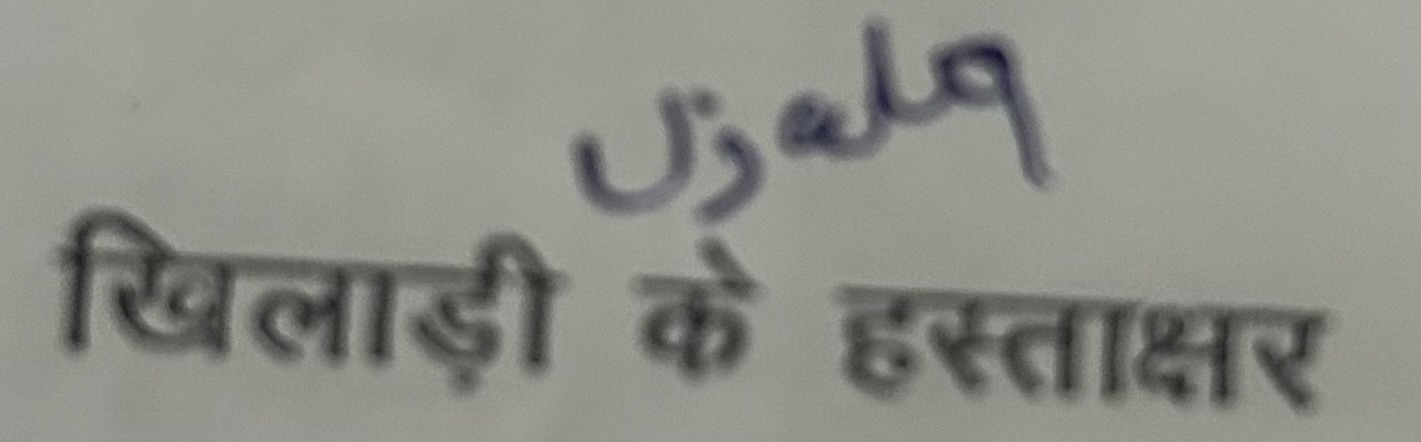 Ujala
खिलाड़ी के हस्ताक्षर